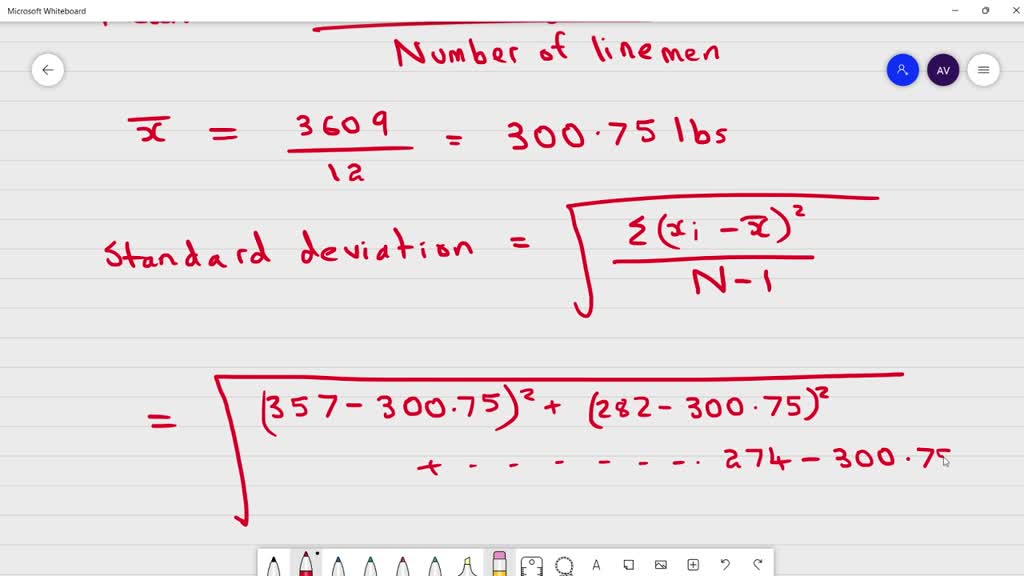 Microsoft Whiteboard
AV
Number of linemen
x̄ = 3609 / 12 = 300.75 lbs
Standard deviation = √ Σ(xi - x̄)² / N-1
= √ (357 - 300.75)² + (282 - 300.75)²
+ - - - - - - . 274 - 300.75
A